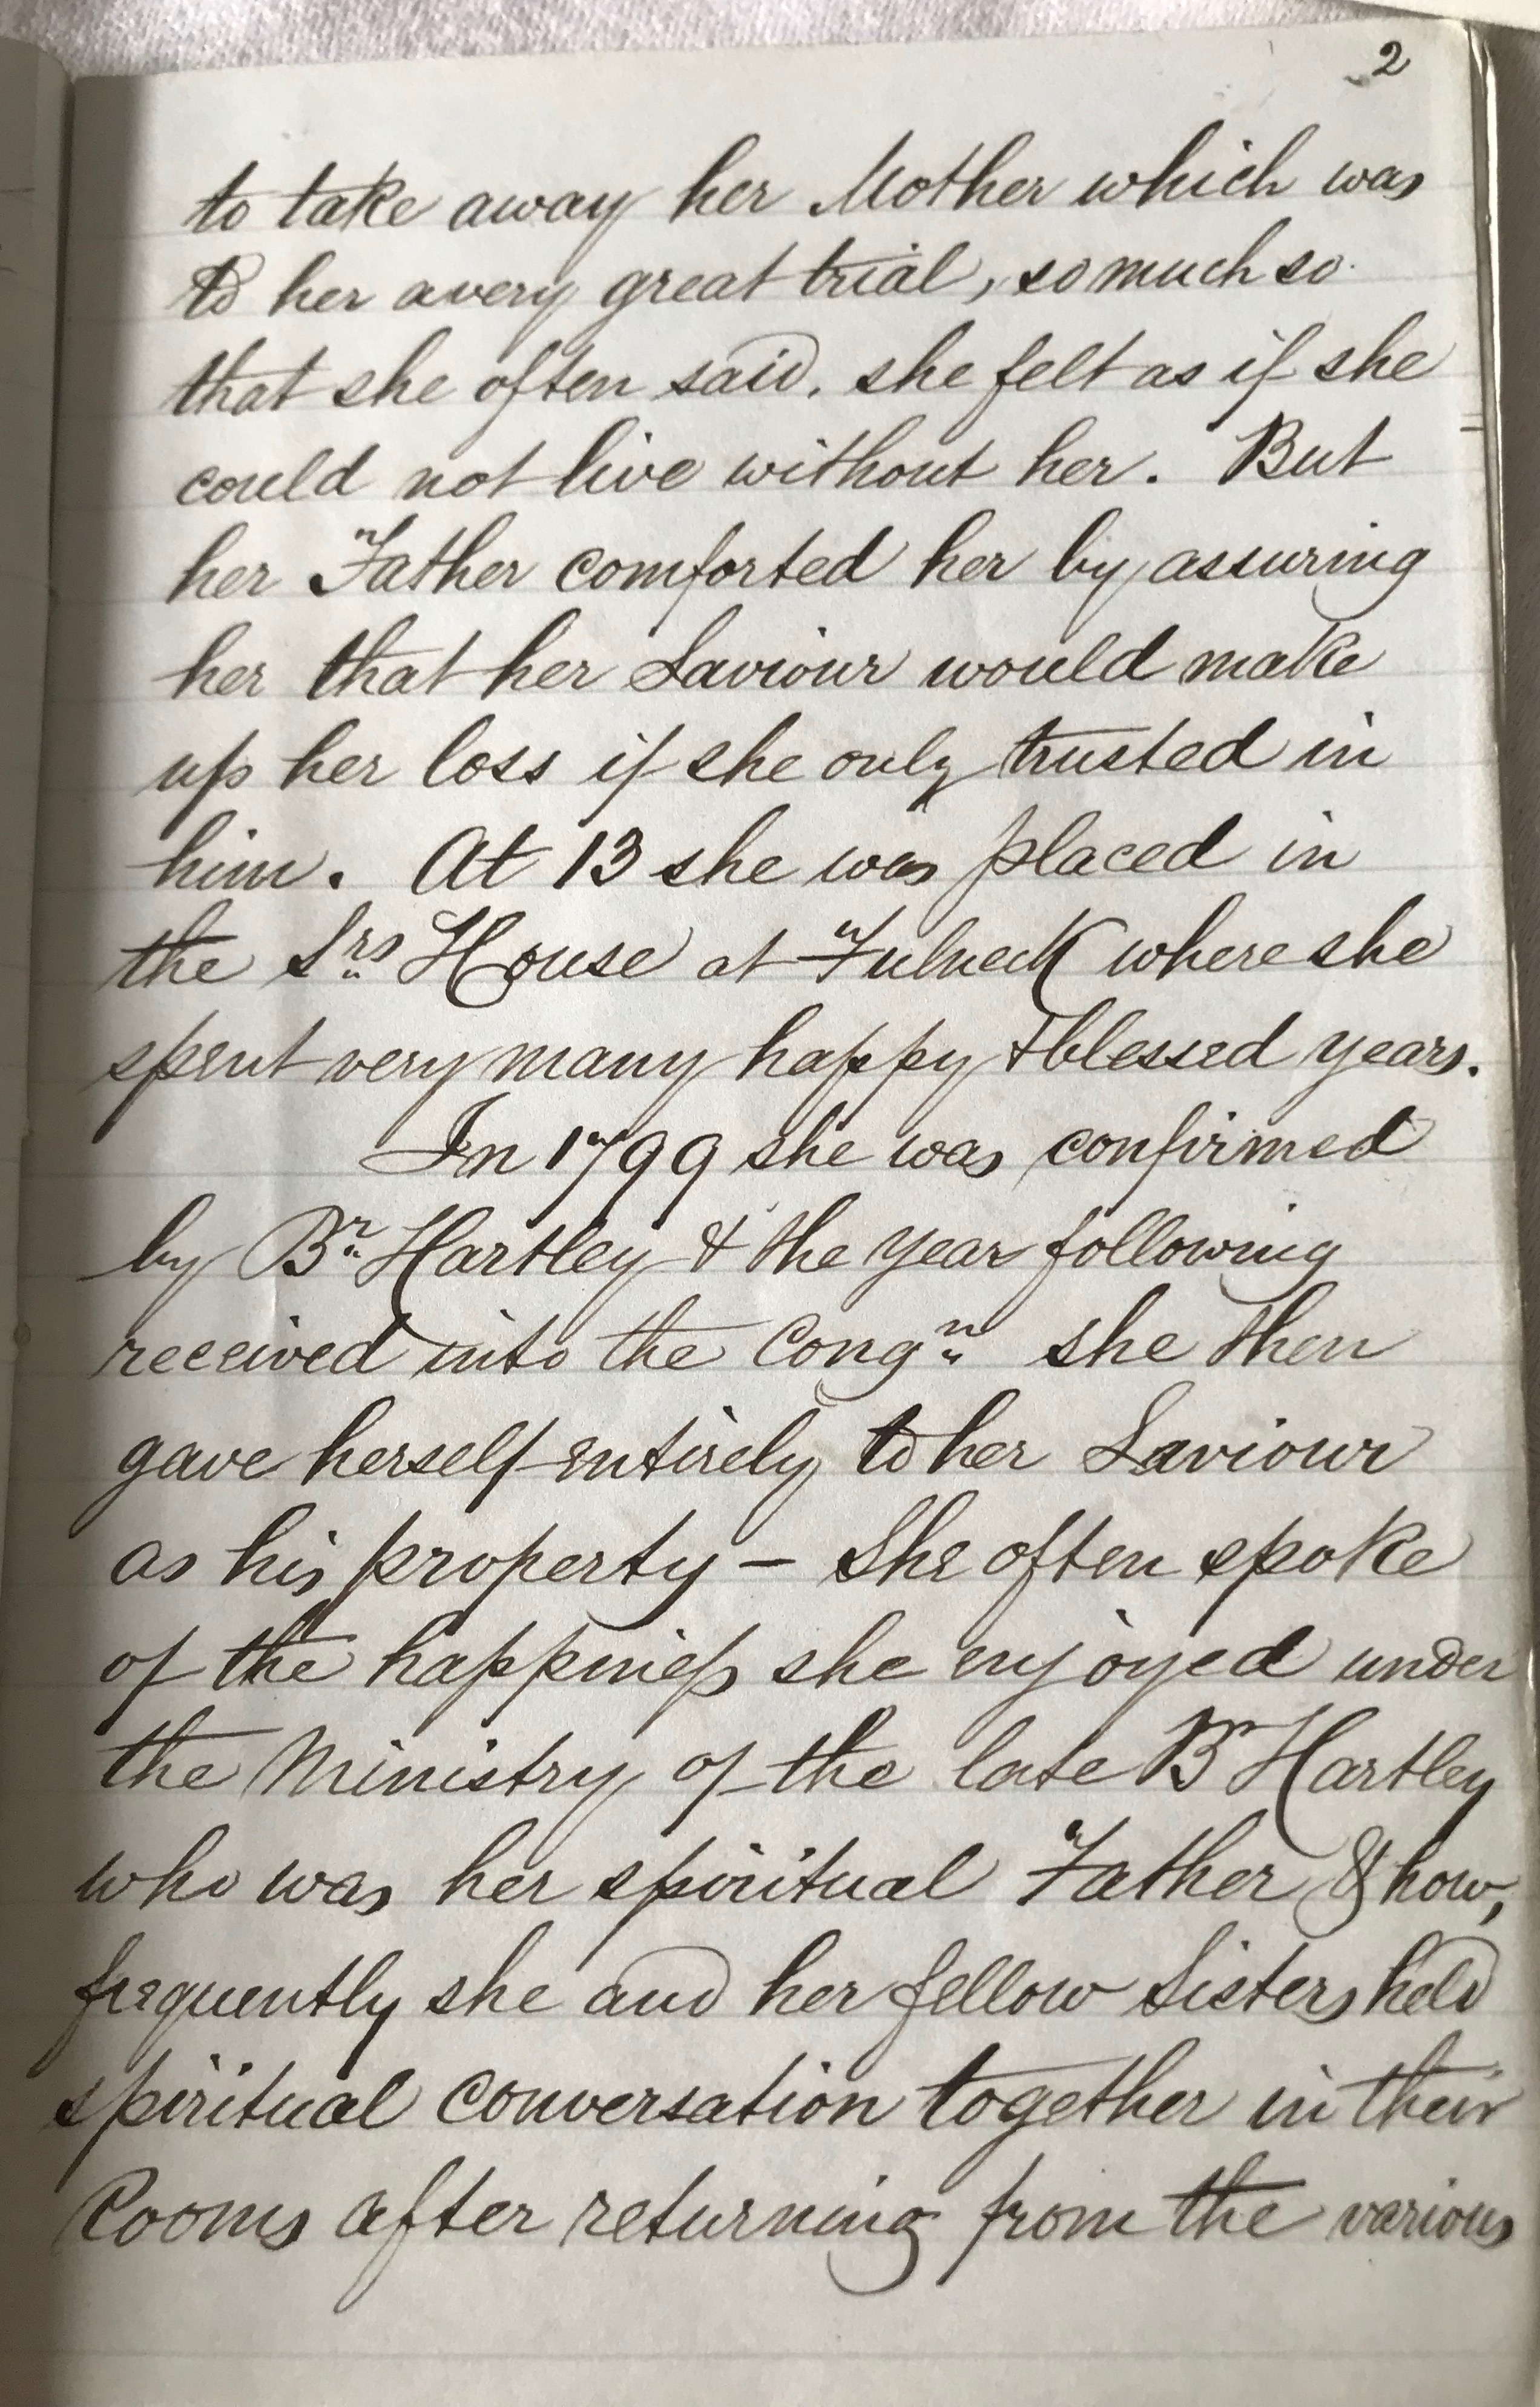 2
to take away her Mother which was
to her a very great trial, so much so
that she often said, she felt as if she
could not live without her. But
her Father comforted her by assuring
her that her Saviour would make
up her loss if she only trusted in
him. At 13 she was placed in
the Srs House at Fulneck where she
spent very many happy & blessed years.
In 1799 she was confirmed
by Br Hartley & the year following
received into the Congn she then
gave herself entirely to her Saviour
as his property – She often spoke
of the happineſs she enjoyed under
the Ministry of the late Br Hartley
who was her spiritual Father & how,
frequently she and her fellow Sisters held
spiritual conversation together in their
Rooms after returning from the various